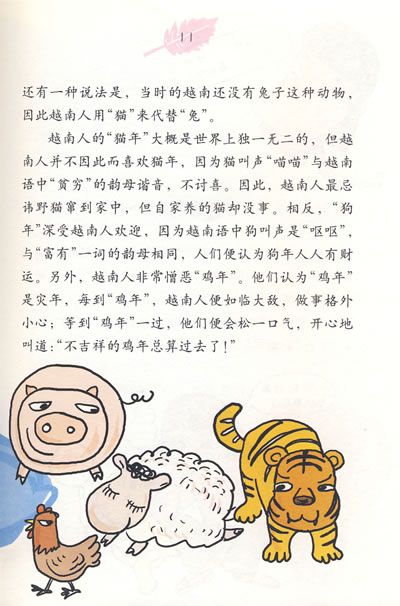 11
还有一种说法是，当时的越南还没有兔子这种动物，
因此越南人用“猫”来代替“兔”。
越南人的“猫年”大概是世界上独一无二的，但越
南人并不因此而喜欢猫年，因为猫叫声“喵喵”与越南
语中“贫穷”的韵母谐音，不讨喜。因此，越南人最忌
讳野猫窜到家中，但自家养的猫却没事。相反，“狗
年”深受越南人欢迎，因为越南语中狗叫声是“呕呕”，
与“富有”一词的韵母相同，人们便认为狗年人人有财
运。另外，越南人非常憎恶“鸡年”。他们认为“鸡年”
是灾年，每到“鸡年”，越南人便如临大敌，做事格外
小心；等到“鸡年”一过，他们便会松一口气，开心地
叫道：“不吉祥的鸡年总算过去了！”